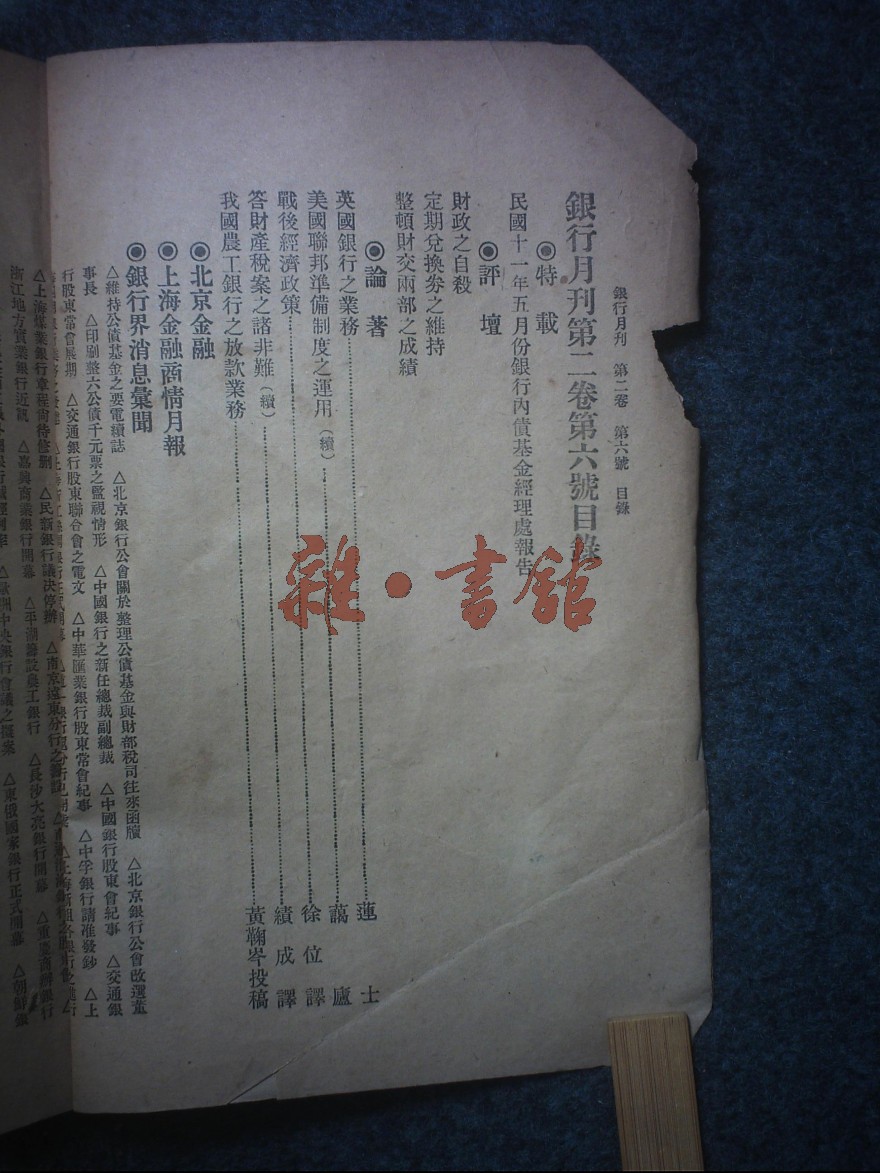 銀行月刊 第二卷 第六號 目錄
銀行月刊第二卷第六號目錄
◉特載
民國十一年五月份銀行內債基金經理處報告
◉評壇
財政之自殺
定期兌換券之維持
整頓財交兩部之成績
◉論著
英國銀行之業務 蓮士
美國聯邦準備制度之運用（續） 藹廬
戰後經濟政策 徐位譯
答財產稅案之諸非難（續） 績成譯
我國農工銀行之放款業務 黃鞠岑投稿
◉北京金融
◉上海金融商情月報
◉銀行界消息彙聞
△維持公債基金之要電續誌 △北京銀行公會關於整理公債基金與財部稅司往來函牘 △北京銀行公會改選董
事長 △印刷整六公債千元票之監視情形 △中國銀行之新任總裁副總裁 △中國銀行股東會紀事 △交通銀
行股東常會展期 △交通銀行股東聯合會之電文 △中華匯業銀行股東常會紀事 △中孚銀行請准發鈔 △上
△上海煤業銀行章程尚待修删 △民新銀行議決停辦 △東京遠東分行之
浙江地方實業銀行近訊 △嘉興商業銀行開幕 △平湖籌設農工銀行 △長沙大亮銀行開幕 △重慶商辦銀行
△歐洲中央銀行會議之擬案 △東俄國家銀行正式開幕 △朝鮮銀
雜·書館